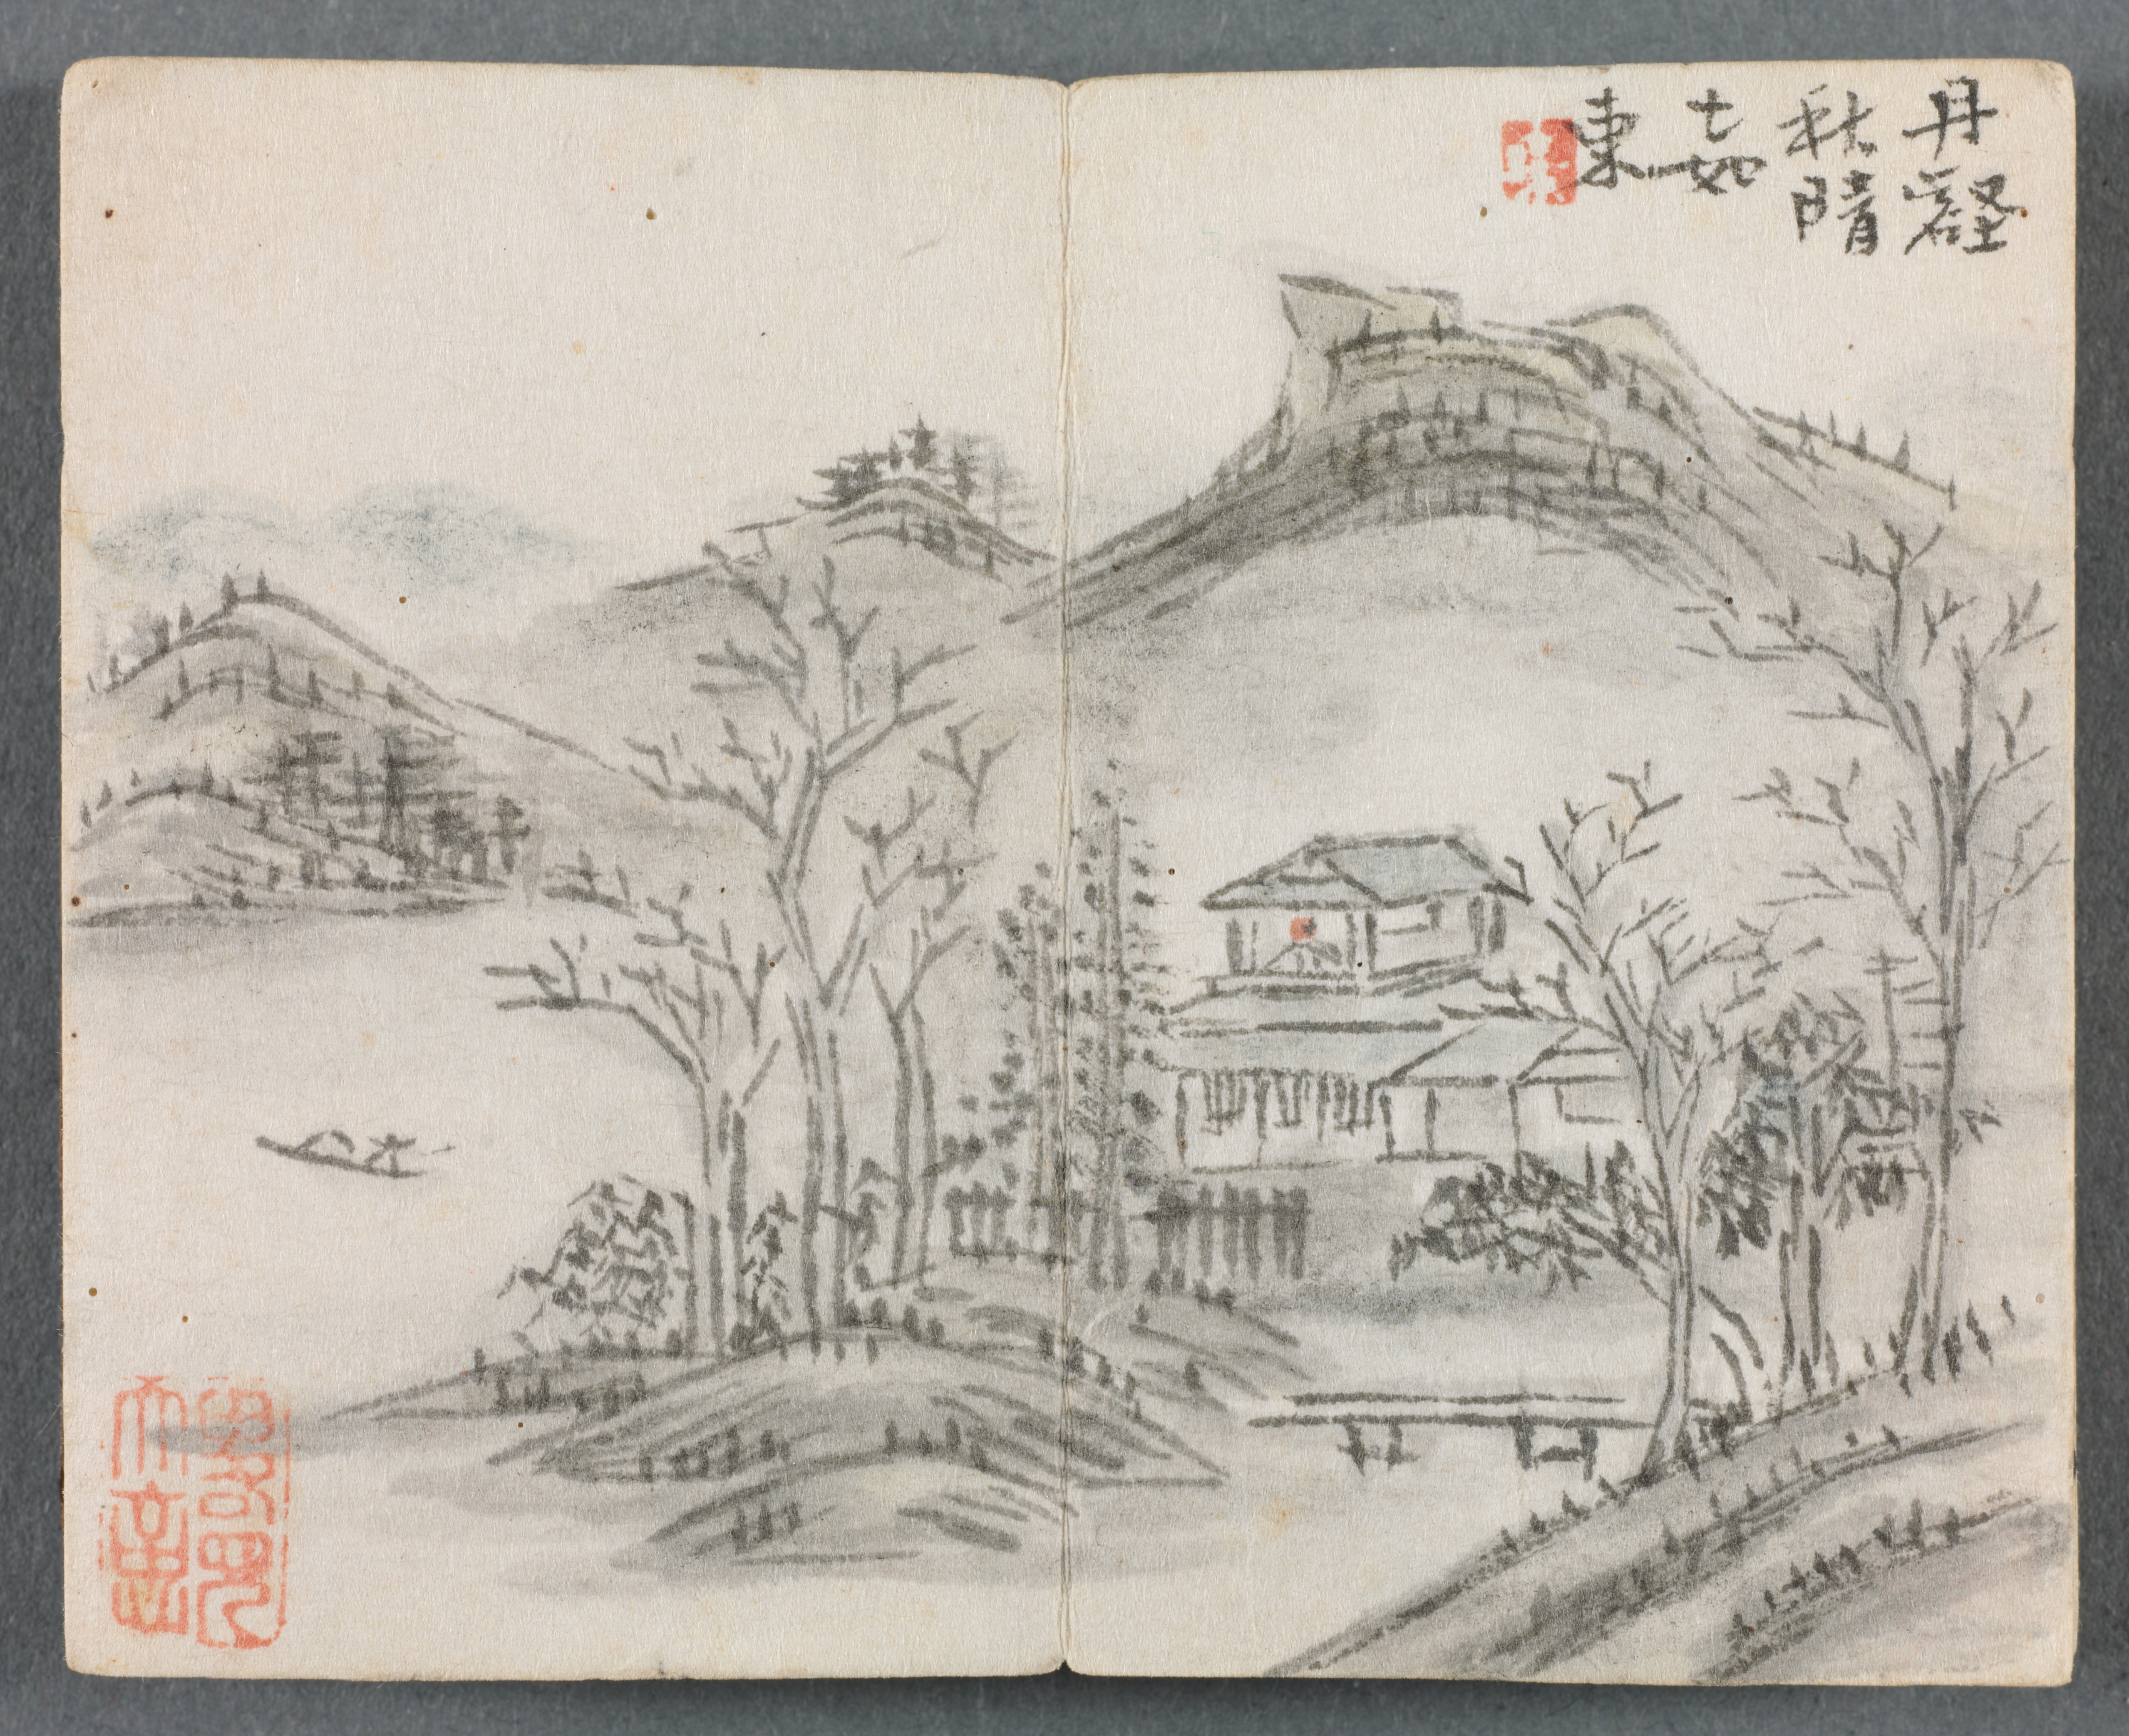 丹壑
秋晴
七如
東